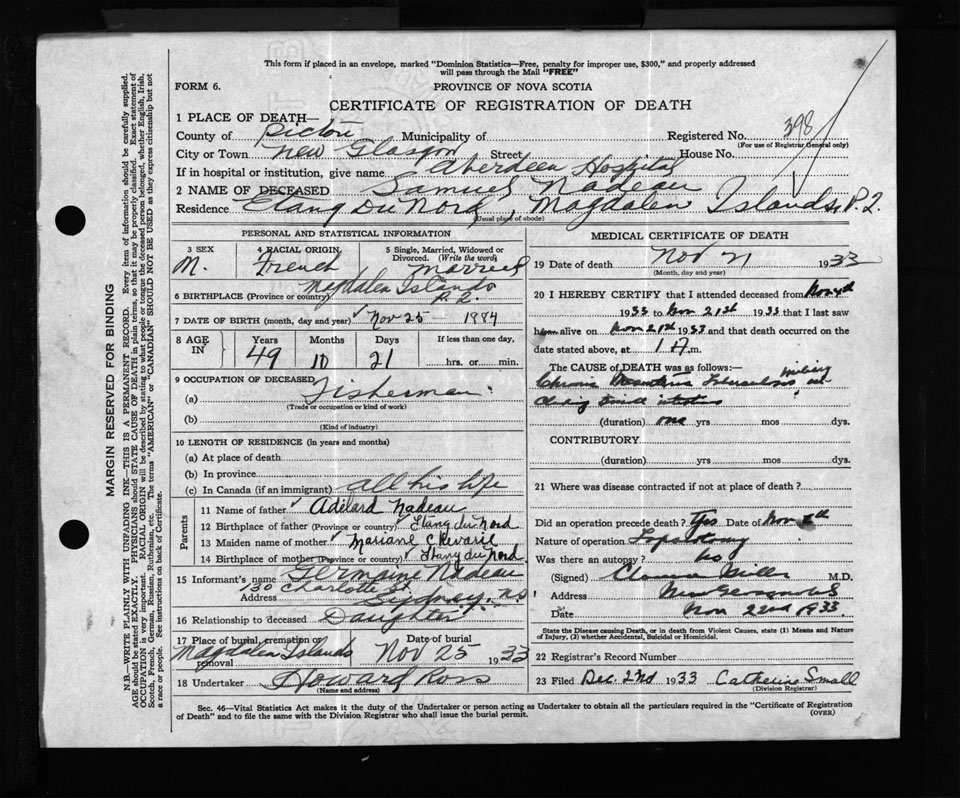 This form if placed in an envelope, marked "Dominion Statistics—Free, penalty for improper use, $300," and properly addressed
will pass through the Mail "FREE"
FORM 6.
PROVINCE OF NOVA SCOTIA
CERTIFICATE OF REGISTRATION OF DEATH
1 PLACE OF DEATH—
County of Pictou Municipality of Registered No. 398
(For use of Registrar General only)
City or Town New Glasgow Street House No.
If in hospital or institution, give name Aberdeen Hospital
2 NAME OF DECEASED Samuel Nadeau
Residence Etang Du Nord, Magdalen Islands, P.Q.
(Usual place of abode)
PERSONAL AND STATISTICAL INFORMATION
3 SEX
M.
4 RACIAL ORIGIN
French
5 Single, Married, Widowed or
Divorced. (Write the word)
Married
6 BIRTHPLACE (Province or country) Magdalen Islands
P.Q.
7 DATE OF BIRTH (month, day and year) Nov 25 — 1884
8 AGE IN
Years Months Days If less than one day,
49 10 21 hrs. or min.
9 OCCUPATION OF DECEASED
(a) Fisherman
(Trade or occupation or kind of work)
(b)
(Kind of industry)
10 LENGTH OF RESIDENCE (in years and months)
(a) At place of death
(b) In province
(c) In Canada (if an immigrant) all his life
Parents
11 Name of father Adélard Nadeau
12 Birthplace of father (Province or country) Etang du Nord
13 Maiden name of mother Mariane Chevarie
14 Birthplace of mother (Province or country) Etang du Nord
15 Informant's name Nadeau
Address 130 Charlotte St. Sydney, N.S
16 Relationship to deceased Daughter
17 Place of burial, cremation or removal Magdalen Islands
Date of burial
Nov 25 1933
18 Undertaker Howard Ross
(Name and address)
MEDICAL CERTIFICATE OF DEATH
19 Date of death Nov 21 1933
(Month, day and year)
20 I HEREBY CERTIFY that I attended deceased from Nov 4th
1933 to Nov 21st 1933 that I last saw
him alive on Nov 21st 1933 and that death occurred on
date stated above, at 1 A.m.
The CAUSE OF DEATH was as follows:—
Chronic Tuberculosis
(duration) one yrs mos dys.
CONTRIBUTORY
(duration) yrs. mos. dys.
21 Where was disease contracted if not at place of death?
Did an operation precede death? Yes Date of Nov 8th
Nature of operation Laparotomy
Was there an autopsy? no
(Signed) Clarence Miller M.D.
Address New Glasgow N.S
Date Nov 22nd 1933.
State the Disease causing Death, or in death from Violent Causes, state (1) Means and Nature
of Injury, (2) whether Accidental, Suicidal or Homicidal.
22 Registrar's Record Number
23 Filed Dec. 2nd 1933 Catherine Small
(Division Registrar)
Sec. 46—Vital Statistics Act makes it the duty of the Undertaker or person acting as Undertaker to obtain all the particulars required in the "Certificate of Registration
of Death" and to file the same with the Division Registrar who shall issue the burial permit.
(OVER)
MARGIN RESERVED FOR BINDING
N.B.—WRITE PLAINLY WITH UNFADING INK—THIS IS A PERMANENT RECORD. Every item of information should be carefully supplied.
AGE should be stated EXACTLY. PHYSICIANS should STATE CAUSE OF DEATH in plain terms, so that it may be properly classified. Exact statement of
OCCUPATION is very important. RACIAL ORIGIN will be described by stating to what people or tongue the deceased person belonged, whether English, Irish,
Scotch, French, German, Russian, Ruthenian, etc. The terms "AMERICAN" or "CANADIAN" SHOULD NOT BE USED as they express citizenship but not
a race or people. See instructions on back of Certificate.